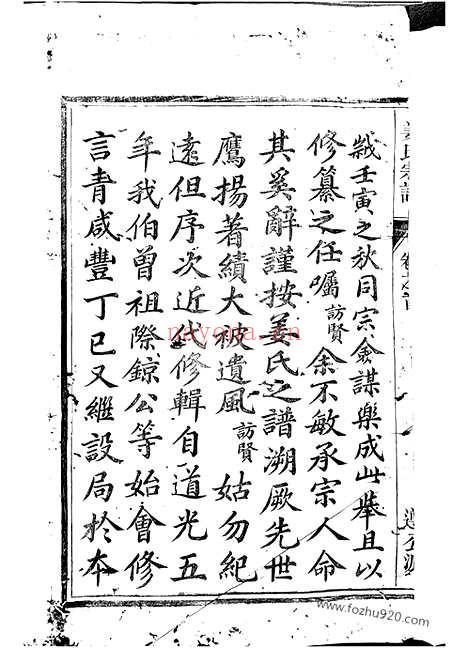 越壬寅之秋同宗僉謀樂成此舉且以
修纂之任囑訪賢余不敏承宗人命
其奚辭謹按姜氏之譜溯厥先世
鷹揚著績大被遺風訪賢姑勿紀
遠但序次近代修輯自道光五
年我伯曾祖際鯨公等始會修
言青咸豐丁巳又繼設局於本
姜氏宗譜
卷之首
nayona.cn
www.fozhu920.com